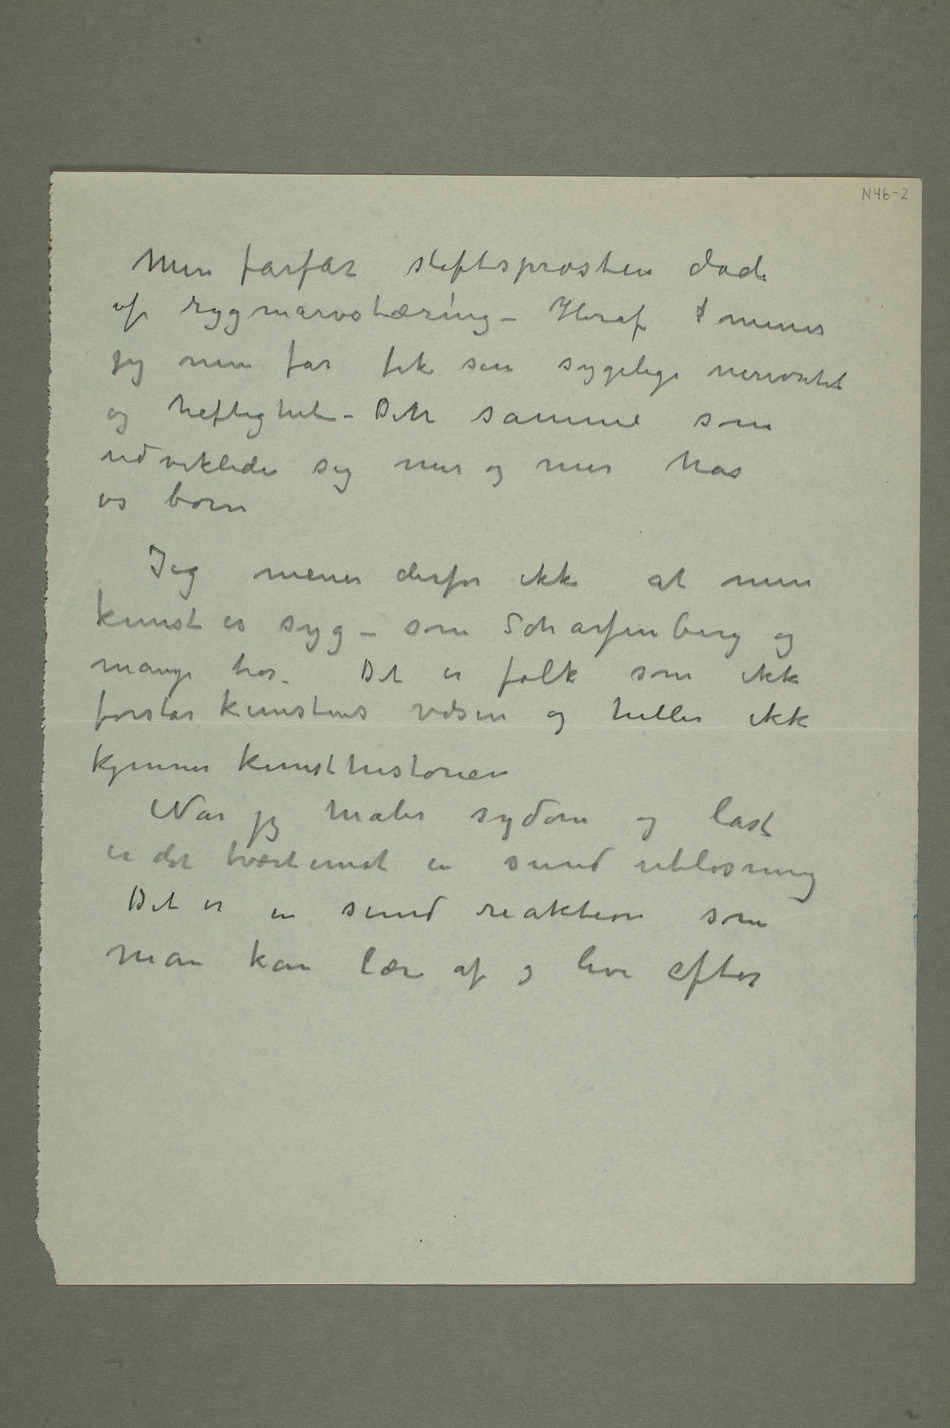 N46-2
Min farfar stiftsprosten døde
af rygmarvstæring – Heraf menes
jeg min far fik sin sygelige nervøsitet
og heftighet – Dette samme som
udviklede sig mer og mer hos
os børn
Jeg mener derfor ikke at min
kunst er syg – som Scharfenberg og
mange tror. Det er folk som ikke
forstår kunstens væsen og heller ikke
kjenner kunsthistorien
Når jeg maler sygdom og last
er det tvertimot en sund utløsning
Det er en sund reaktion som
man kan lære af og leve efter